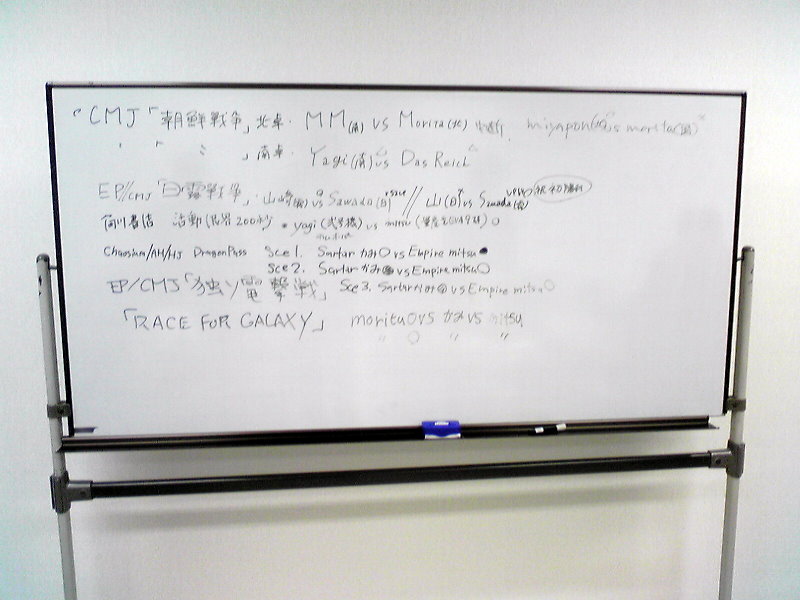 CMJ「朝鮮戦争」北卓・ MM vs Morita(北) miyapon vs morita
〃 「 〃 」南卓・ Yagi vs Das Reich
EP/CMJ「日露戦争」・山崎 vs Sawada(日) // 山(日) vs Sawada
活動 200秒 yagi(弐号機) vs mitsu ○
Chaosium/AH/HJ DragonPass Sce 1. Sartar かみ○ vs Empire mitsu●
Sce 2. Sartar かみ vs Empire mitsu○
EP/CMJ「独ソ電撃戦」 Sce 3. Sartar かみ vs Empire mitsu○
「RACE FOR GALAXY」 morita○ vs かみ vs mitsu
〃 ○ 〃 〃